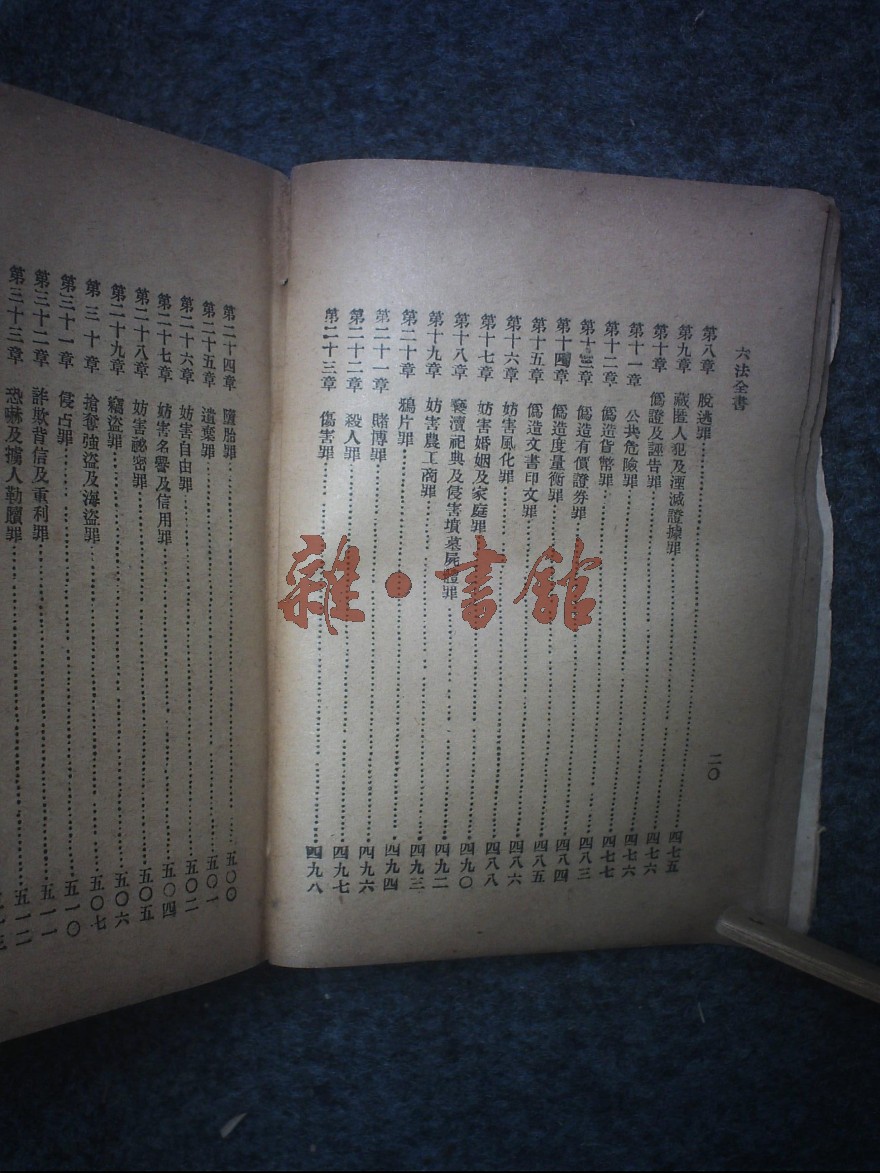 六法全書
二〇
第八章 脫逃罪……四七五
第九章 藏匿人犯及湮滅證據罪……四七六
第十章 僞證及誣告罪……四七六
第十一章 公共危險罪……四七七
第十二章 僞造貨幣罪……四八三
第十三章 僞造有價證券罪……四八四
第十四章 僞造度量衡罪……四八五
第十五章 僞造文書印文罪……四八六
第十六章 妨害風化罪……四八八
第十七章 妨害婚姻及家庭罪……四九〇
第十八章 褻瀆祀典及侵害墳墓屍體罪……四九二
第十九章 妨害農工商罪……四九三
第二十章 鴉片罪……四九四
第二十一章 賭博罪……四九六
第二十二章 殺人罪……四九七
第二十三章 傷害罪……四九八
第二十四章 墮胎罪……五〇〇
第二十五章 遺棄罪……五〇一
第二十六章 妨害自由罪……五〇二
第二十七章 妨害名譽及信用罪……五〇四
第二十八章 妨害祕密罪……五〇五
第二十九章 竊盜罪……五〇六
第三十章 搶奪強盜及海盜罪……五〇七
第三十一章 侵占罪……五一〇
第三十二章 詐欺背信及重利罪……五一一
第三十三章 恐嚇及擄人勒贖罪……五一二
雜·書館